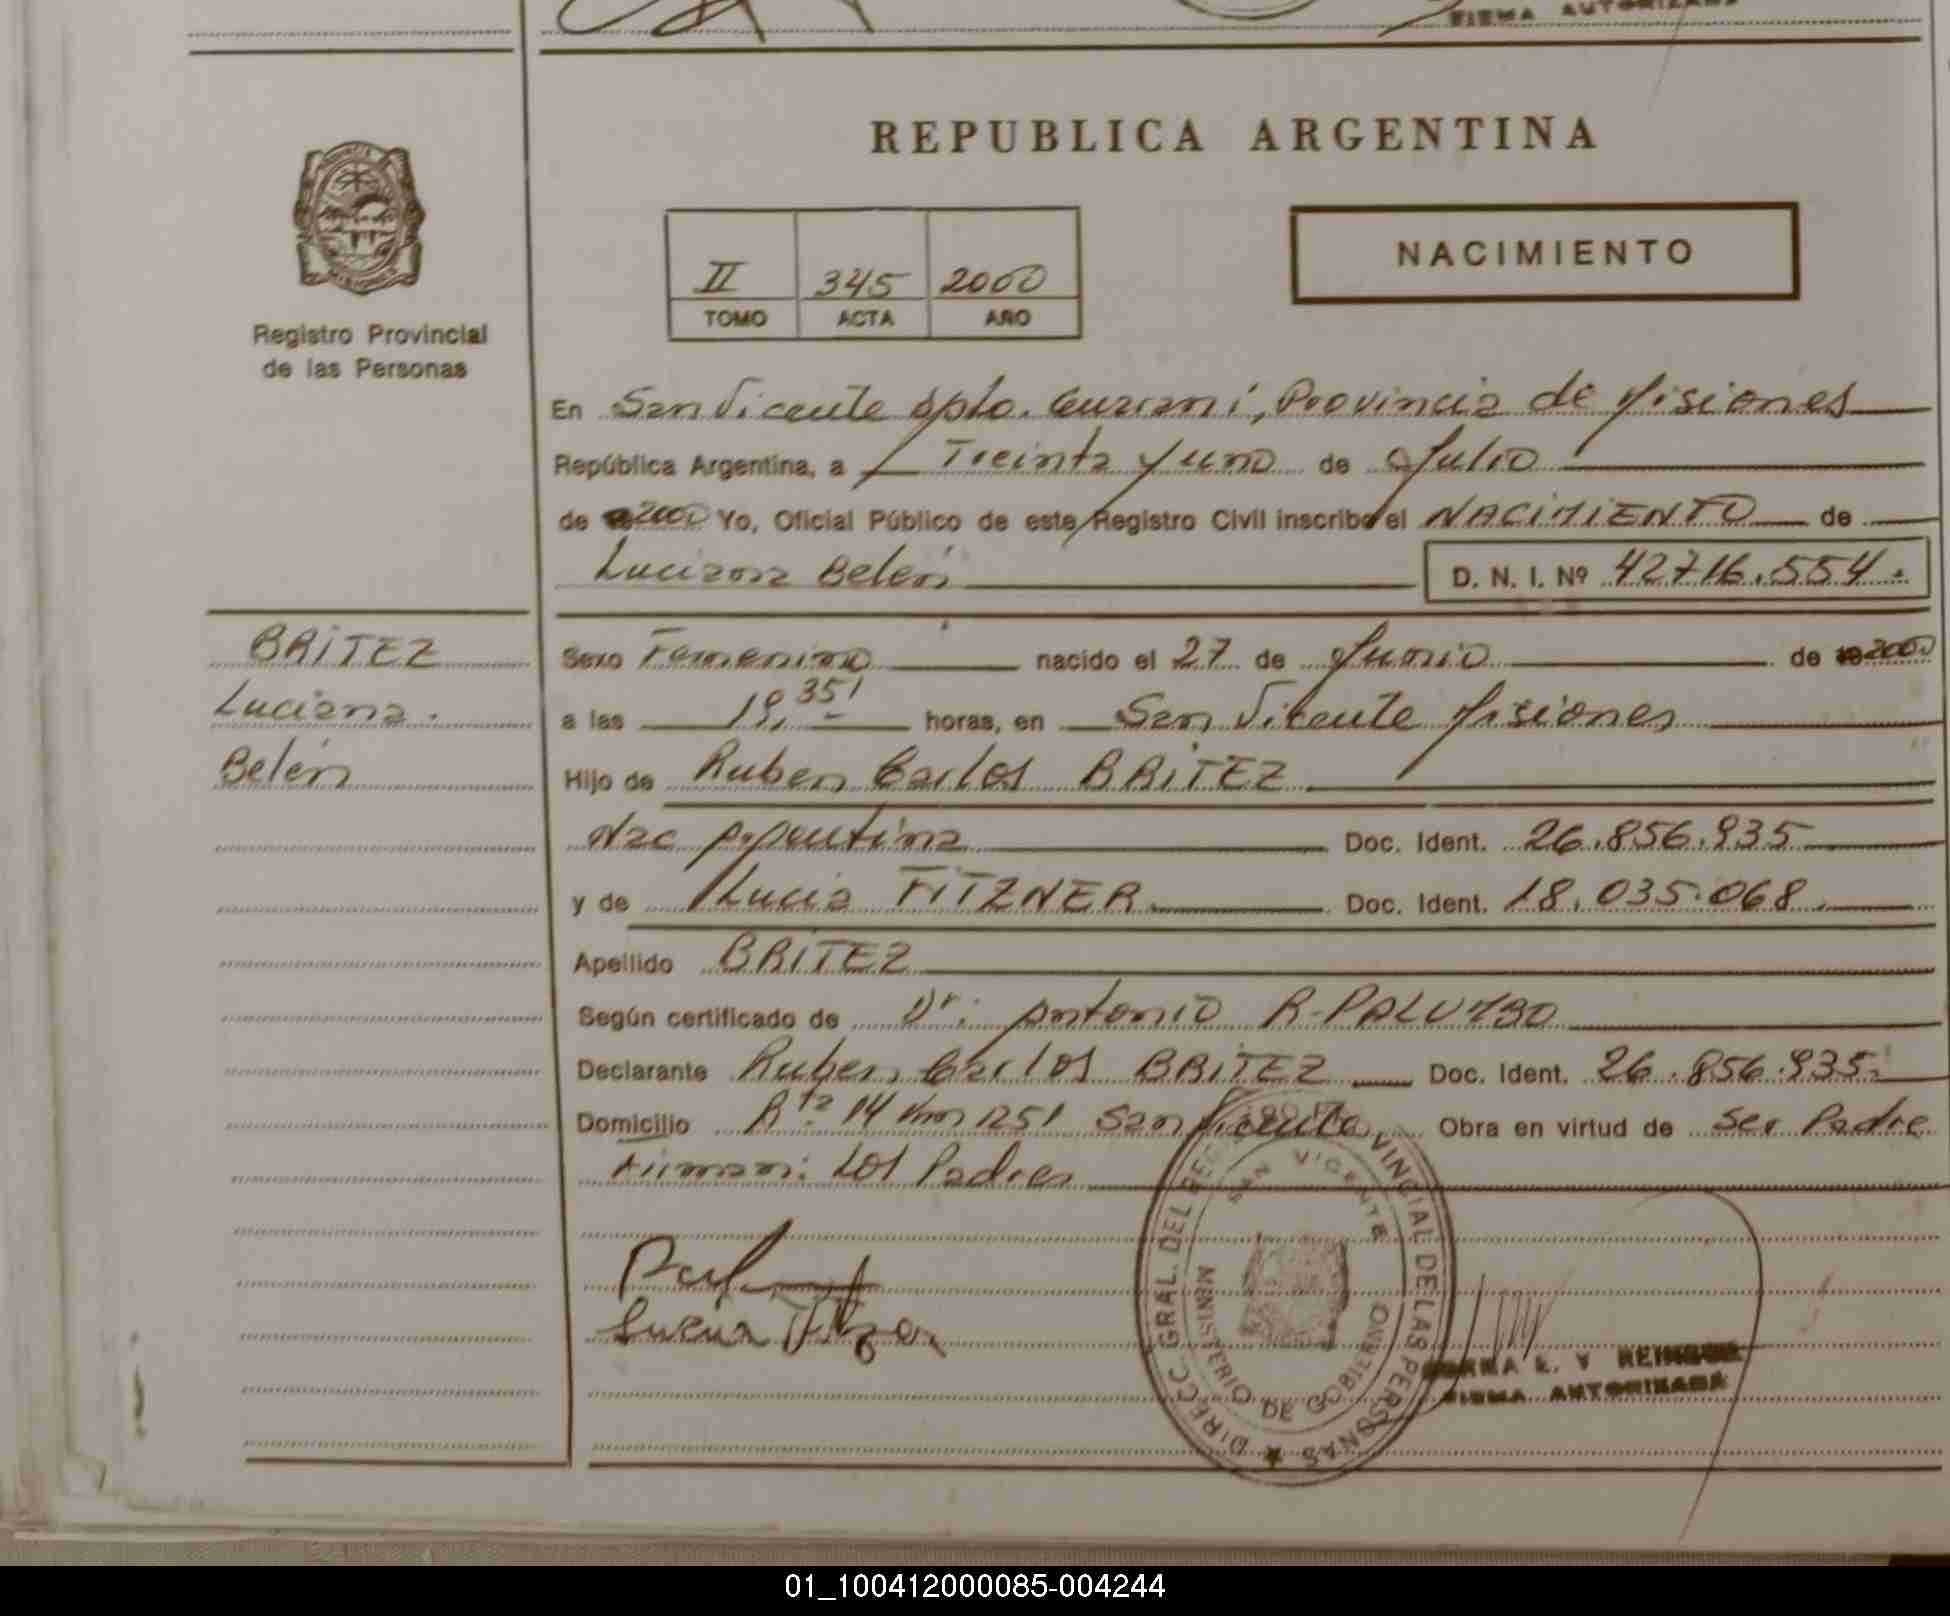 FIRMA AUTORIZADA
REPUBLICA ARGENTINA
NACIMIENTO
II 345 2000
TOMO ACTA AÑO
Registro Provincial
de las Personas
En San Vicente Dpto. Guarani, Provincia de Misiones
República Argentina, a Treinta y uno de Julio
de 2000 Yo, Oficial Público de este Registro Civil inscribo el NACIMIENTO de
Luciana Belén D. N. I. Nº 42716.554.
BRITEZ
Luciana.
Belén
Sexo Femenino nacido el 27 de Junio de 2000
a las 19,35' horas, en San Vicente Misiones
Hijo de Ruben Carlos BRITEZ
Nac Argentina Doc. Ident. 26.856.935
y de Lucia FITZNER Doc. Ident. 18.035.068
Apellido BRITEZ
Según certificado de Dr: Antonio R. PALUMBO
Declarante Ruben Carlos BRITEZ Doc. Ident. 26.856.935.
Domicilio Rta 14 Km 1251 San Vicente Obra en virtud de Ser Padre
Firman: Los Padres
DIRECC. GRAL. DEL REG. PROVINCIAL DE LAS PERSONAS
SAN VICENTE
MINISTERIO DE GOBIERNO
FIRMA AUTORIZADA
01_100412000085-004244